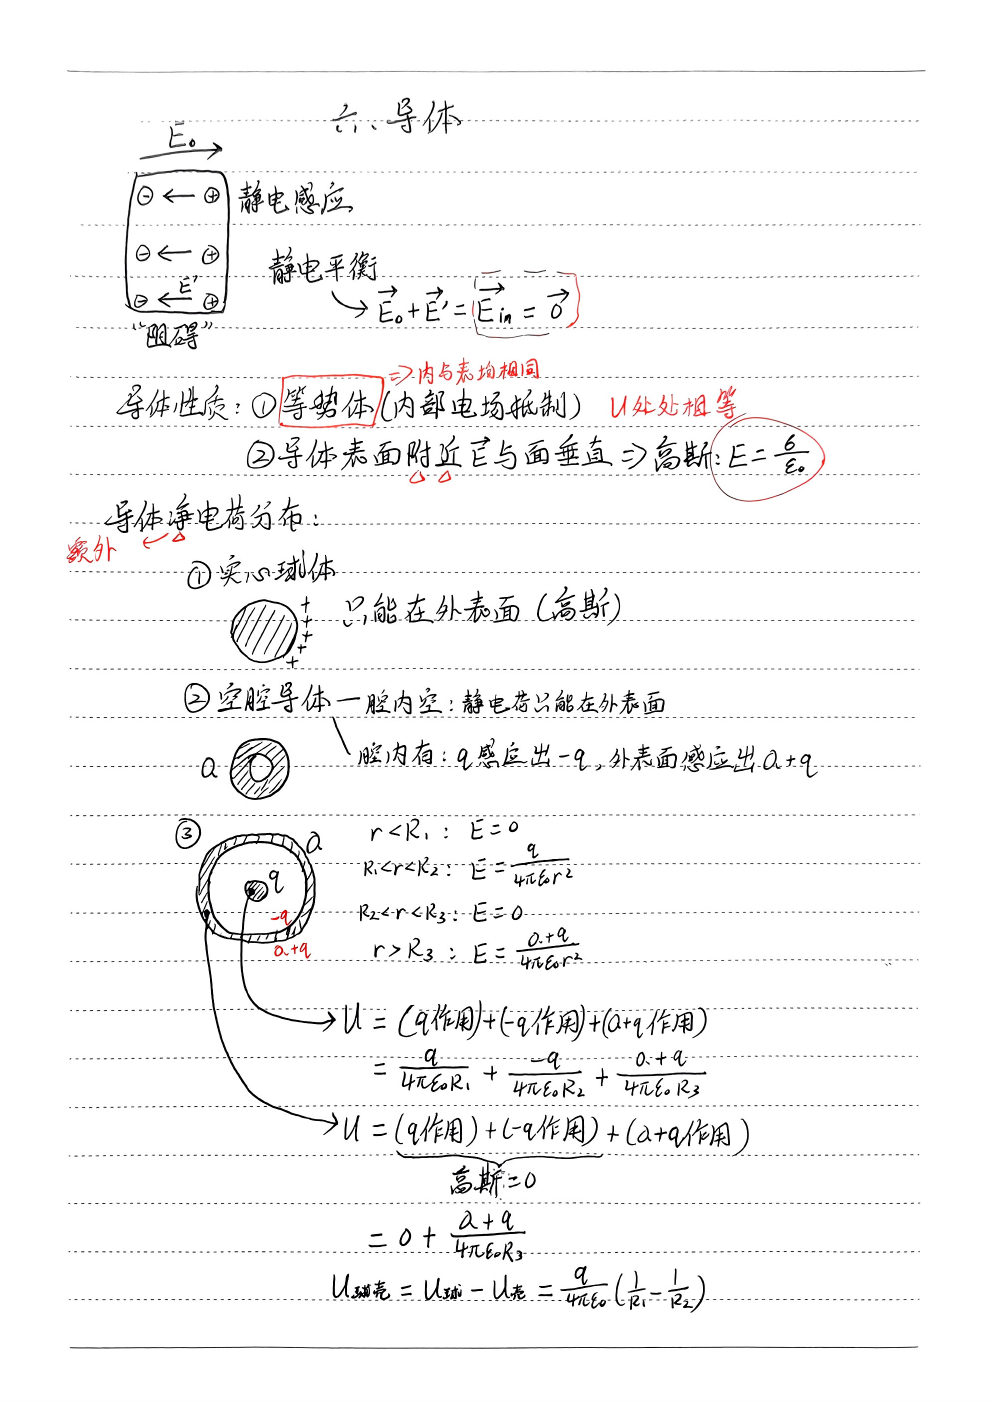 六、导体
E₀
⊖ ← ⊕ 静电感应
⊖ ← ⊕
静电平衡
E'
⊖ ← ⊕
→ E₀ + E' = E in = 0
"阻碍"
⇒内与表均相同
导体性质: ① 等势体 (内部电场抵制) U处处相等
② 导体表面附近E与面垂直 ⇒ 高斯: E = σ/ε₀
导体净电荷分布:
额外
① 实心球体
只能在外表面 (高斯)
+ + + + +
② 空腔导体 — 腔内空: 静电荷只能在外表面
腔内有: q感应出-q, 外表面感应出Q+q
Q
③
Q
q
-q
Q+q
r<R₁: E=0
R₁<r<R₂: E = q/4πε₀r²
R₂<r<R₃: E=0
r>R₃: E = Q+q/4πε₀r²
U = (q作用)+(-q作用)+(Q+q作用)
= q/4πε₀R₁ + -q/4πε₀R₂ + Q+q/4πε₀R₃
U = (q作用)+(-q作用)+(Q+q作用)
高斯=0
= 0 + Q+q/4πε₀R₃
U球壳 = U球 - U壳 = q/4πε₀ (1/R₁ - 1/R₂)